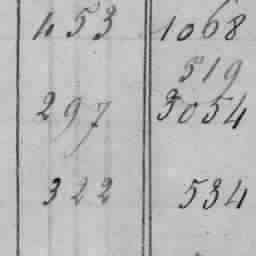 453 1068
519
297 3054
322 534